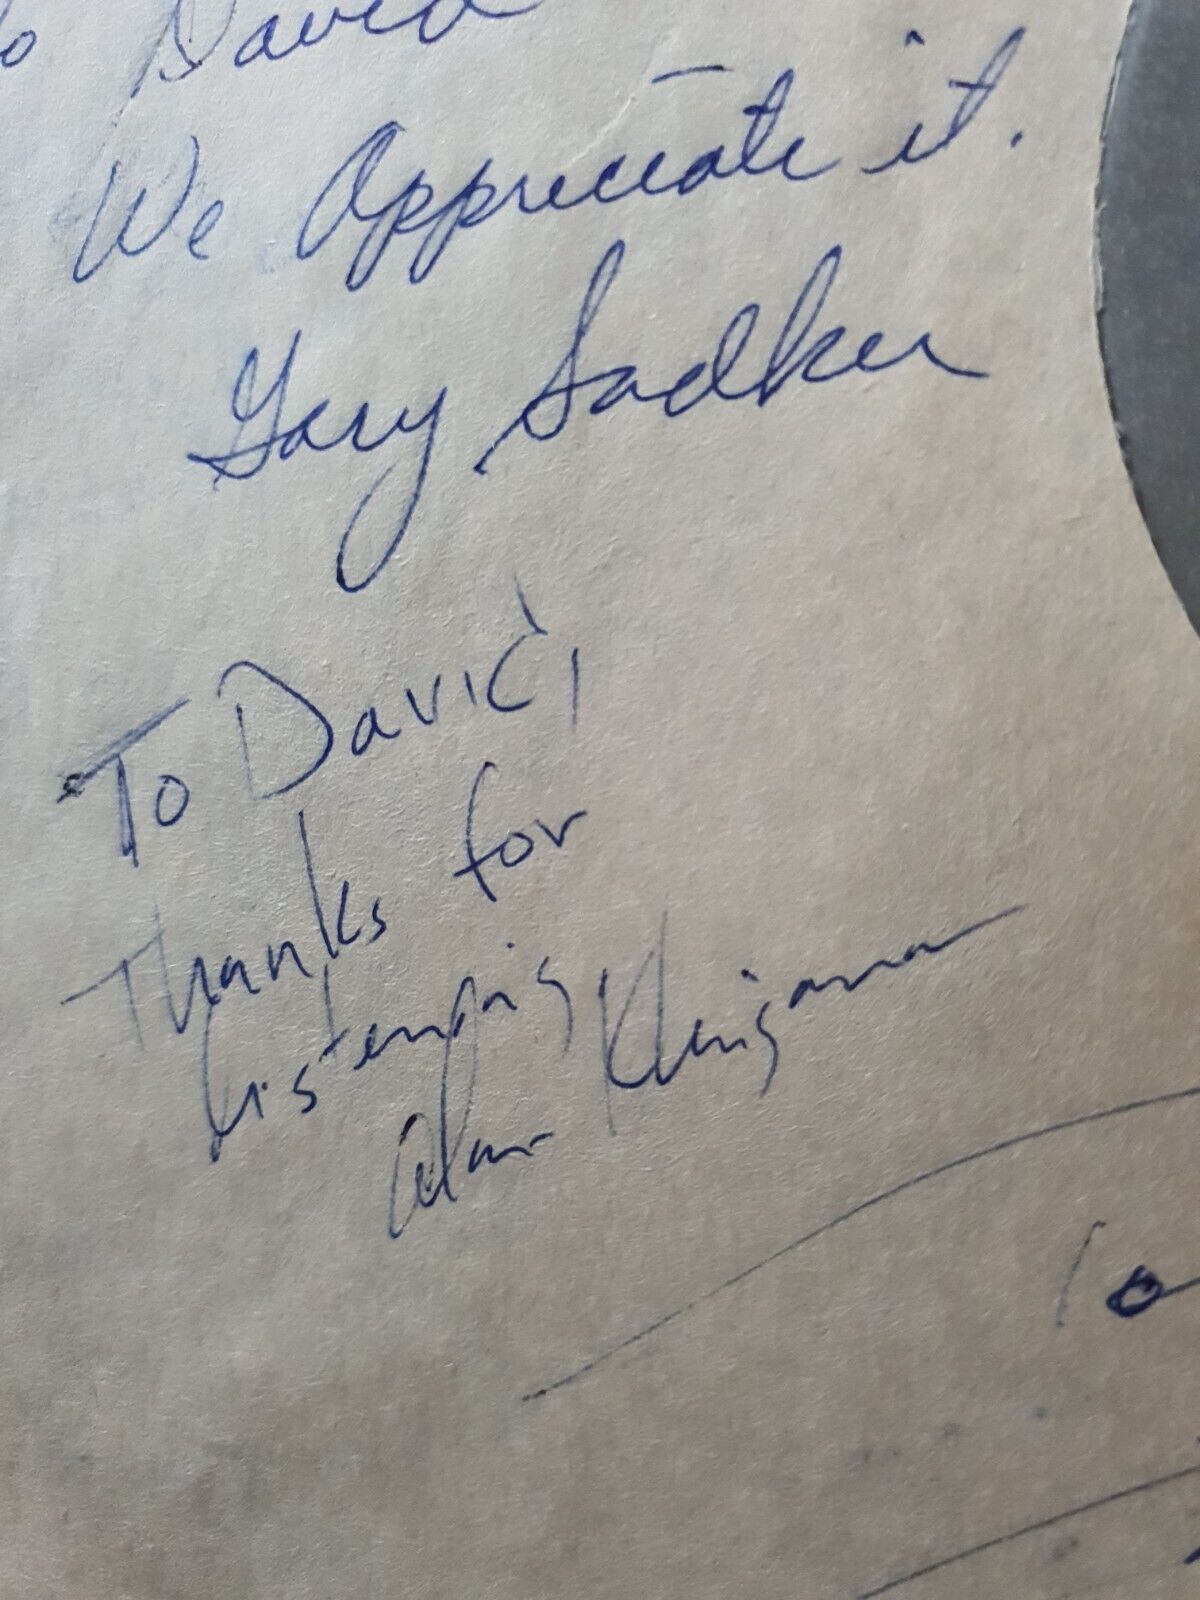 David
We Appreciate it.
Gary Sadker
To David,
Thanks for
listening
Alan
To